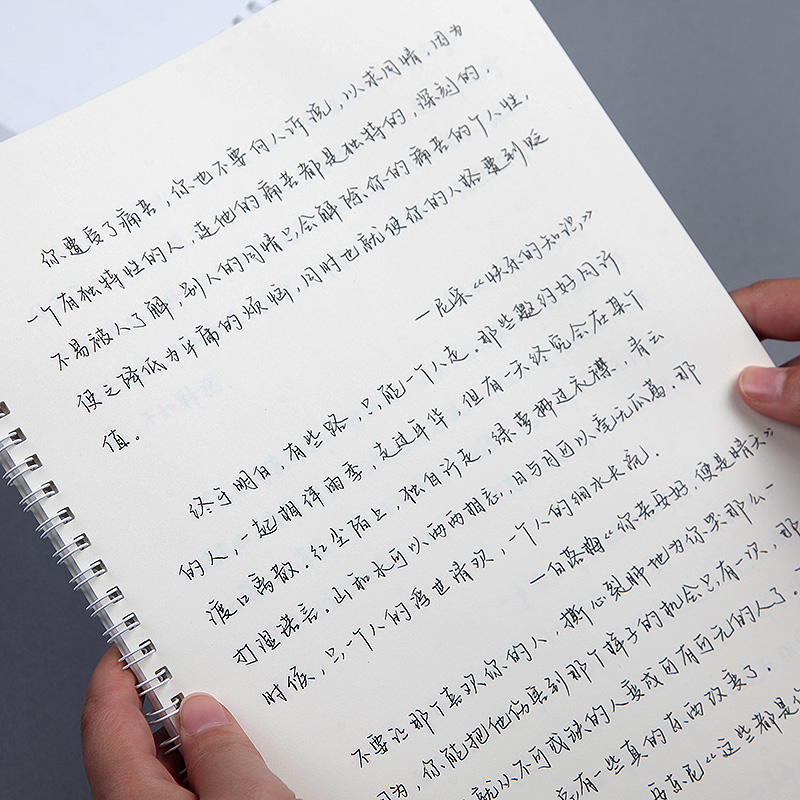 你遭受了痛苦,你也不要向人诉说,以求同情,因为
一个有独特性的人,连他的痛苦都是独特的,深刻的,
不易被人了解,别人的同情只会解除你的痛苦的个人性,
使之降低为平庸的烦恼,同时也就使你的人格遭到贬
值。
—尼采《快乐的知识》
终于明白,有些路,只能一个人走。那些邀约好同行
的人,一起相伴雨季,走过年华,但有一天终究会在某个
渡口离散。红尘陌上,独自行走,绿萝拂过衣襟,青云
打湿诺言。山和水可以两两相忘,日与月可以毫无瓜葛。那
时候,只一个人的浮世清欢,一个人的细水长流。
—白落梅《你若安好,便是晴天》
不要让那个喜欢你的人,撕心裂肺地为你哭那么一
因为,你能把他伤害到那个样子的机会只有一次,那
就从不可或缺的人变成可有可无的人了。
有一些真的东西改变了。
《这些都是你